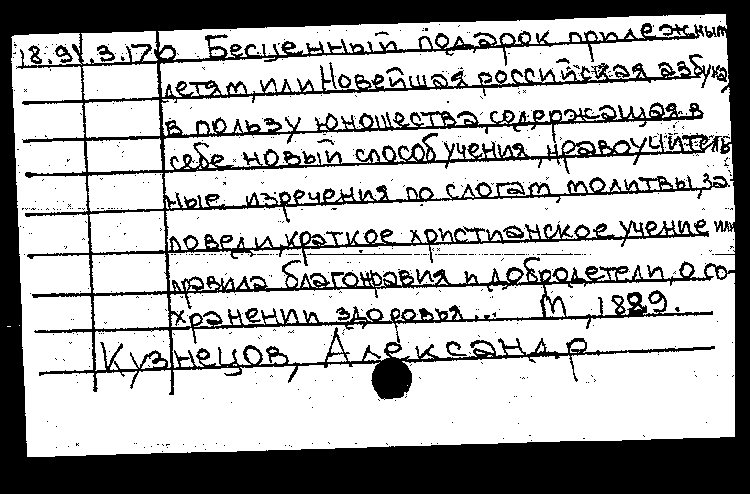 18.91.3.170 Бесценный подарок прилежным
детям, или Новейшая российская азбука,
в пользу юношества, содержащая в
себе новый способ учения, нравоучитель-
ные изречения по слогам, молитвы, за-
поведи, краткое христианское учение или
правила благонравия и добродетели, о со-
хранении здоровья... М, 1829.
Кузнецов, Александр.